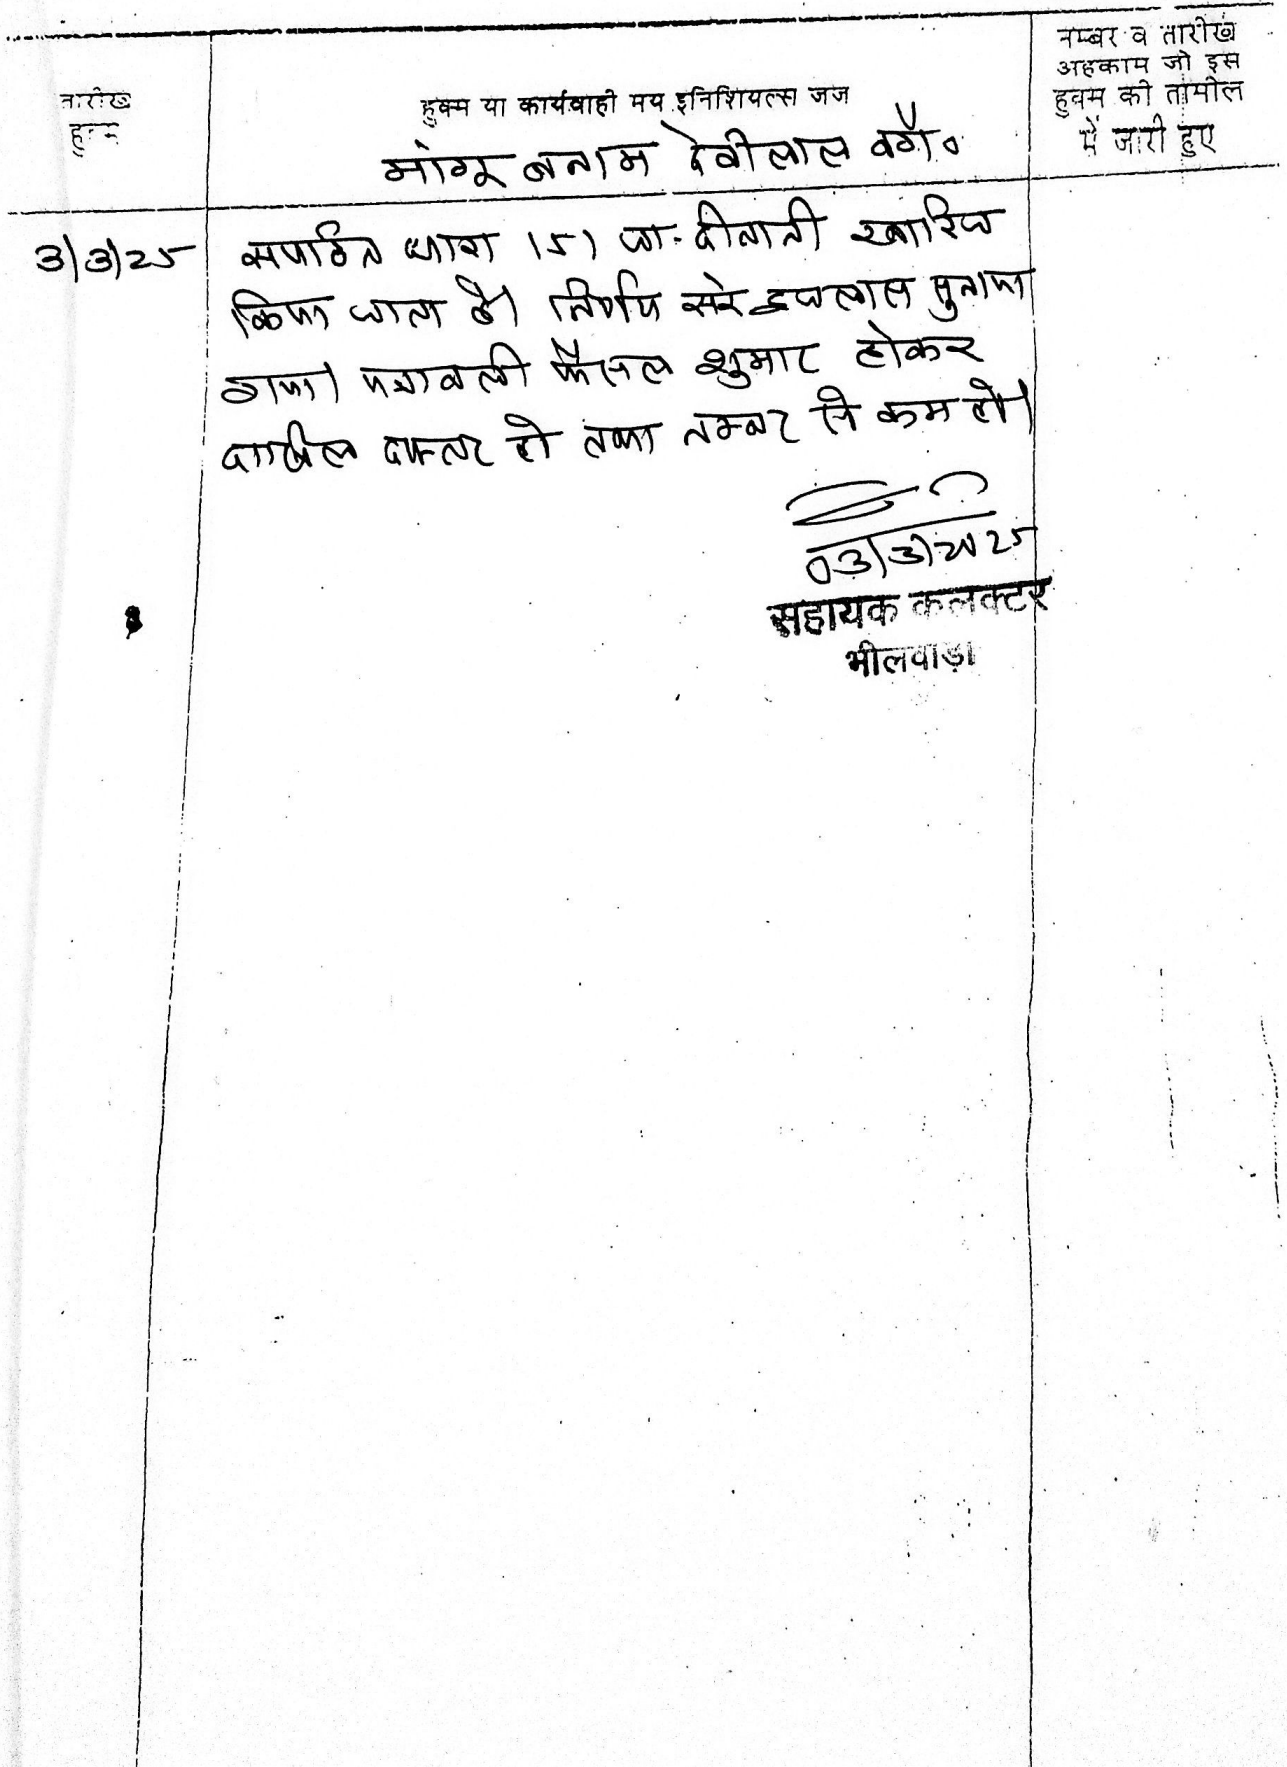 तारीख
हुक्म
हुक्म या कार्यवाही मय इनिशियल्स जज
नम्बर व तारीख
अहकाम जो इस
हुक्म की तामील
में जारी हुए
मांगू बनाम देवीलाल वगै०
3/3/25
सपठित धारा 151 जा. दीवानी खारिज
किया जाता है। निर्णय सरे इजलास सुनाया
गया। पत्रावली फैसल शुमार होकर
दाखिल दफ्तर हो तथा नम्बर से कम हो।
03/3/2025
सहायक कलक्टर
भीलवाड़ा